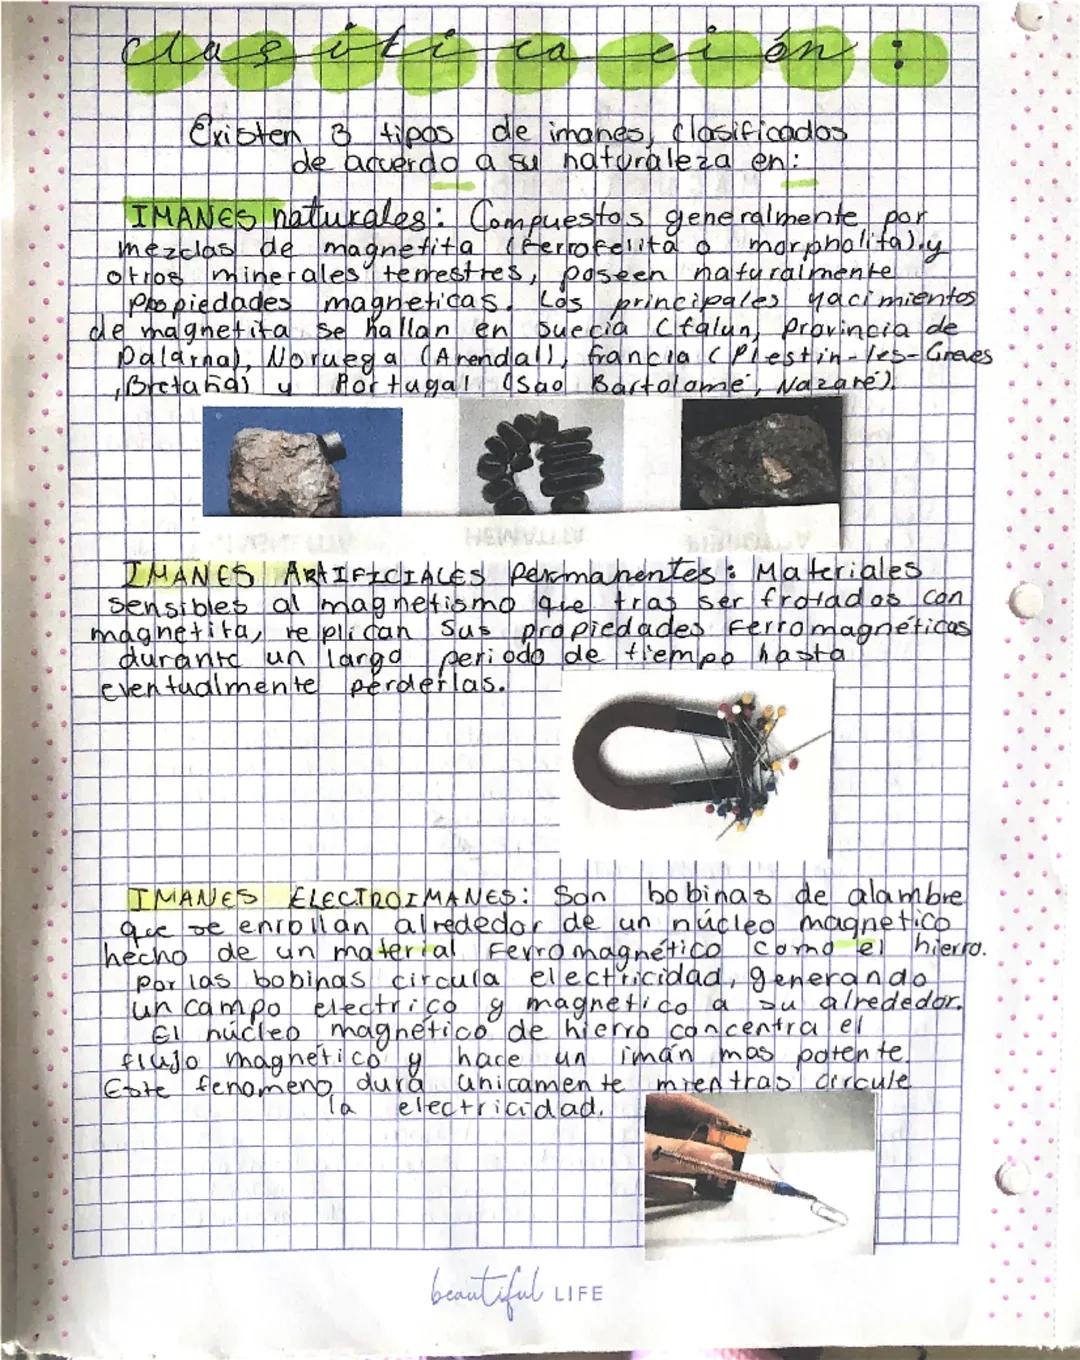 Clasificación:
Existen 3 tipos de imanes, clasificados
de acuerdo a su naturaleza en:
IMANES naturales: Compuestos generalmente por
mezclas de magnetita (ferrofelita o morpholita) y
otros minerales terrestres, poseen naturalmente
propiedades magneticas. Los principales yacimientos
de magnetita se hallan en suecia (falun, provincia de
Dalarna), Noruega (Arendal), francia (Plestin-les-Greves
,Bretaña) y Portugal (Sao Bartolomé, Nazaré)
HEMATITA
IMANES ARTIFICIALES permanentes: Materiales
sensibles al magnetismo que tras ser frotados con
magnetita, replican sus propiedades Ferromagnéticas
durante un largo periodo de tiempo hasta
eventualmente perderlas.
IMANES ELECTROIMANES: Son bobinas de alambre
que se enrollan alrededor de un núcleo magnetico
hecho de un material Ferromagnético como el hierro.
por las bobinas circula electricidad, generando
un campo electrico y magnetico a su alrededor.
El núcleo magnético de hierro concentra el
flujo magnético y hace un imán mas potente.
Este fenomeno dura unicamente mientras circule
la electricidad.
beautiful LIFE